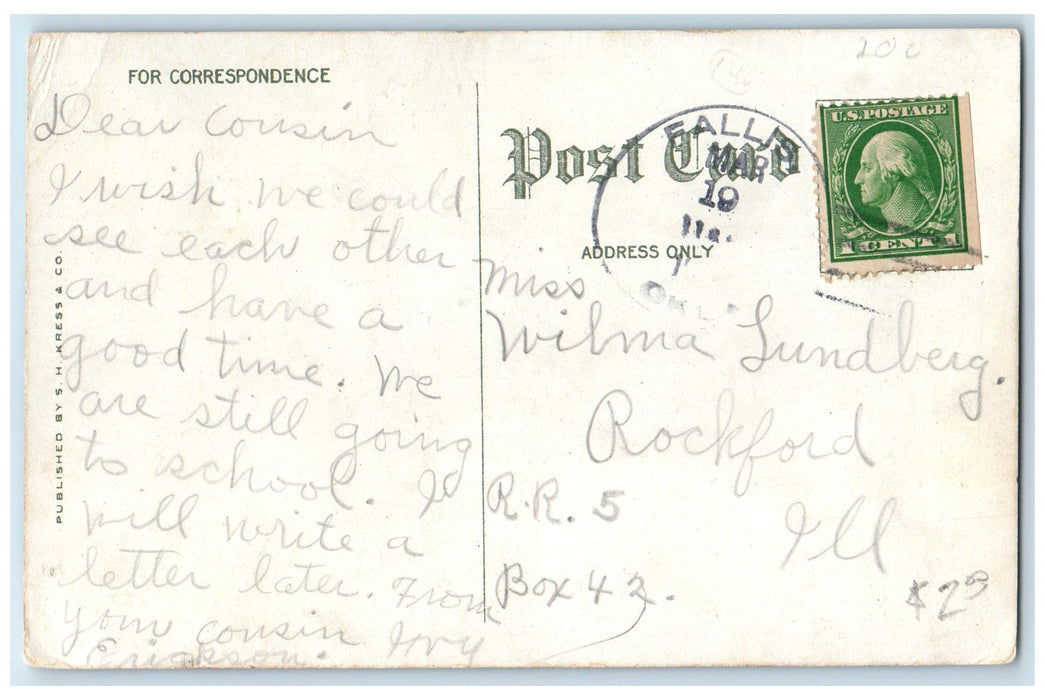 FOR CORRESPONDENCE
Dear Cousin
I wish we could
see each other
and have a
good time. We
are still going
to school. I
will write a
letter later. From
your cousin Ivy
Erickson.
PUBLISHED BY S. H. KRESS & CO.
20c
Post Card
ADDRESS ONLY
FALLIS
MAR
19
OKLA.
U.S. POSTAGE
1 CENT 1
Miss
Wilma Lundberg.
Rockford
R.R. 5
Ill
Box 42.
$200